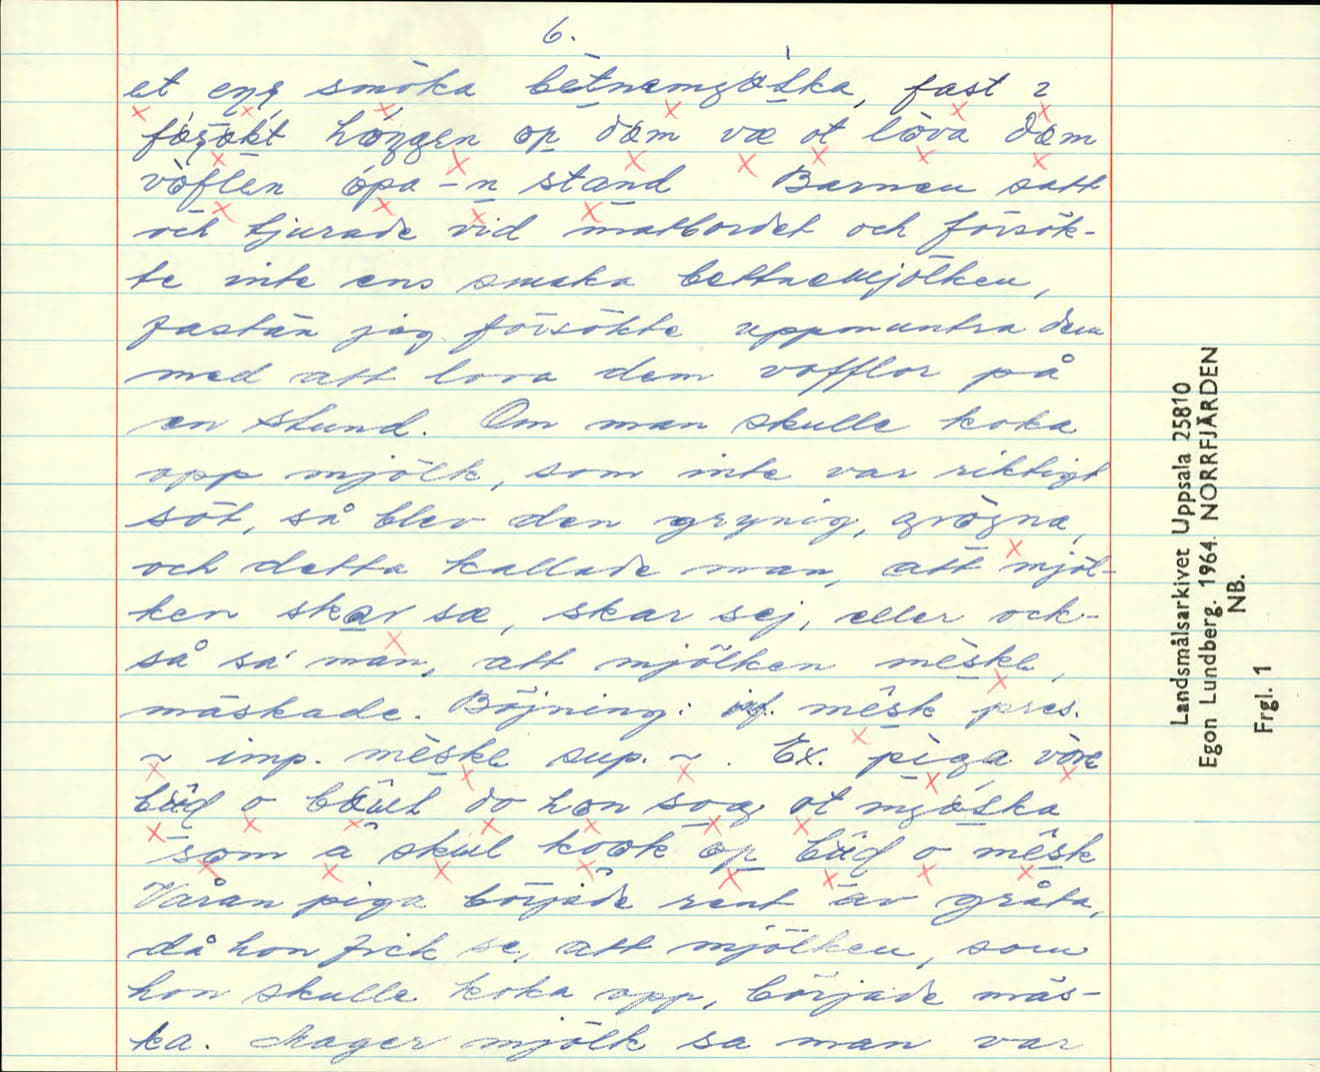 6.
et smöka fast
vœ ot löva dœm
stand Barnen satt
och tjurade vid matbordet och försök-
te inte ens smaka bettnemjölken,
fastän jag försökte uppmuntra dem
med att lova dem våfflor på
en stund. Om man skulle koka
opp mjölk, som inte var riktigt
söt, så blev den grynig,
och detta kallade man, att mjöl-
ken skar sœ, skar sej, eller ock-
så sa' man, att mjölken mèskl,
mäskade. Böjning: inf. mêsk pres.
~ imp. mèskl sup. ~ . Ex. pìga vòre
do hon ot
som skul op o mêsk
Våran piga började rent av gråta,
då hon fick se, att mjölken, som
hon skulle koka opp, började mäs-
ka. Mager mjölk sa man var
Landsmålsarkivet Uppsala 25810
Egon Lundberg. 1964. NORRFJÄRDEN
NB.
Frgl. 1